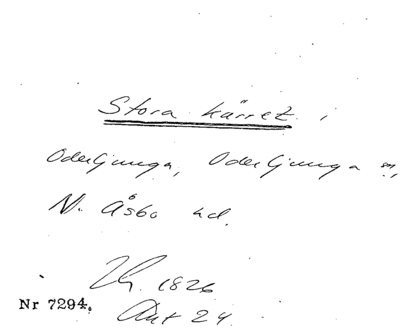 Stora kärret i
Oderljunga, Oderljunga sn,
N. Åsbo hd.
Lh. 1826
Akt 24
Nr 7294.